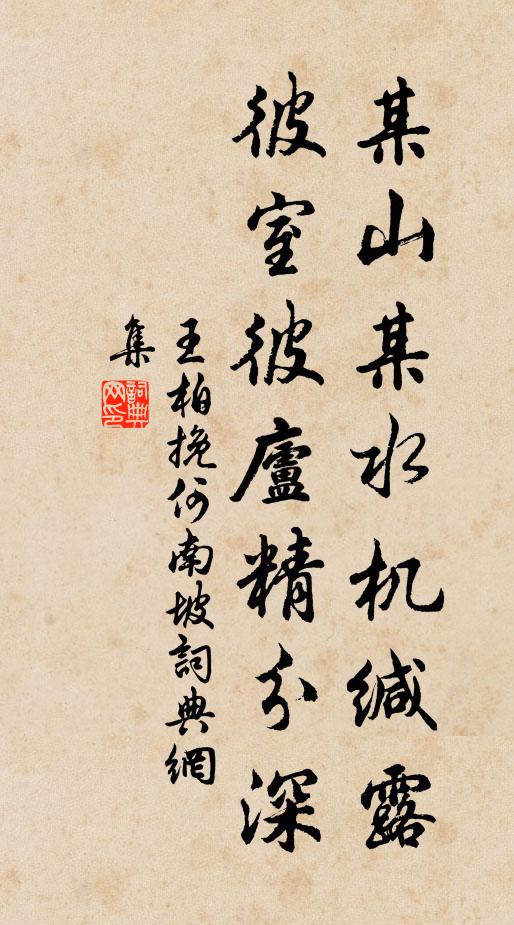 某山某水机缄露
彼室彼廬精分深
王柏挽何南坡詞典網
集
詞典网印